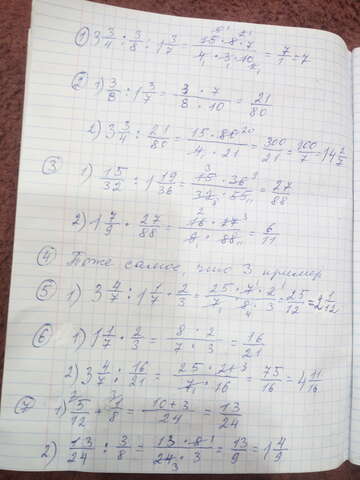 ① 3 3/4 : 3/8 : 1 3/7 = 15·8·7 / 4·3·10 = 7/1 = 7
② 1) 3/8 : 1 3/7 = 3·7 / 8·10 = 21/80
2) 3 3/4 : 21/80 = 15·80 / 4·21 = 300/21 = 100/7 = 14 2/7
③ 1) 15/32 : 1 19/36 = 15·36 / 32·55 = 27/88
2) 1 7/9 · 27/88 = 16·27 / 9·88 = 6/11
④ Тоже самое, что 3 пример
⑤ 1) 3 4/7 : 1 1/7 · 2/3 = 25·7·2 / 7·8·3 = 25/12 = 2 1/12
⑥ 1) 1 1/7 · 2/3 = 8·2 / 7·3 = 16/21
2) 3 4/7 : 16/21 = 25·21 / 7·16 = 75/16 = 4 11/16
⑦ 1) 5/12 + 1/8 = 10+3 / 24 = 13/24
2) 13/24 : 3/8 = 13·8 / 24·3 = 13/9 = 1 4/9